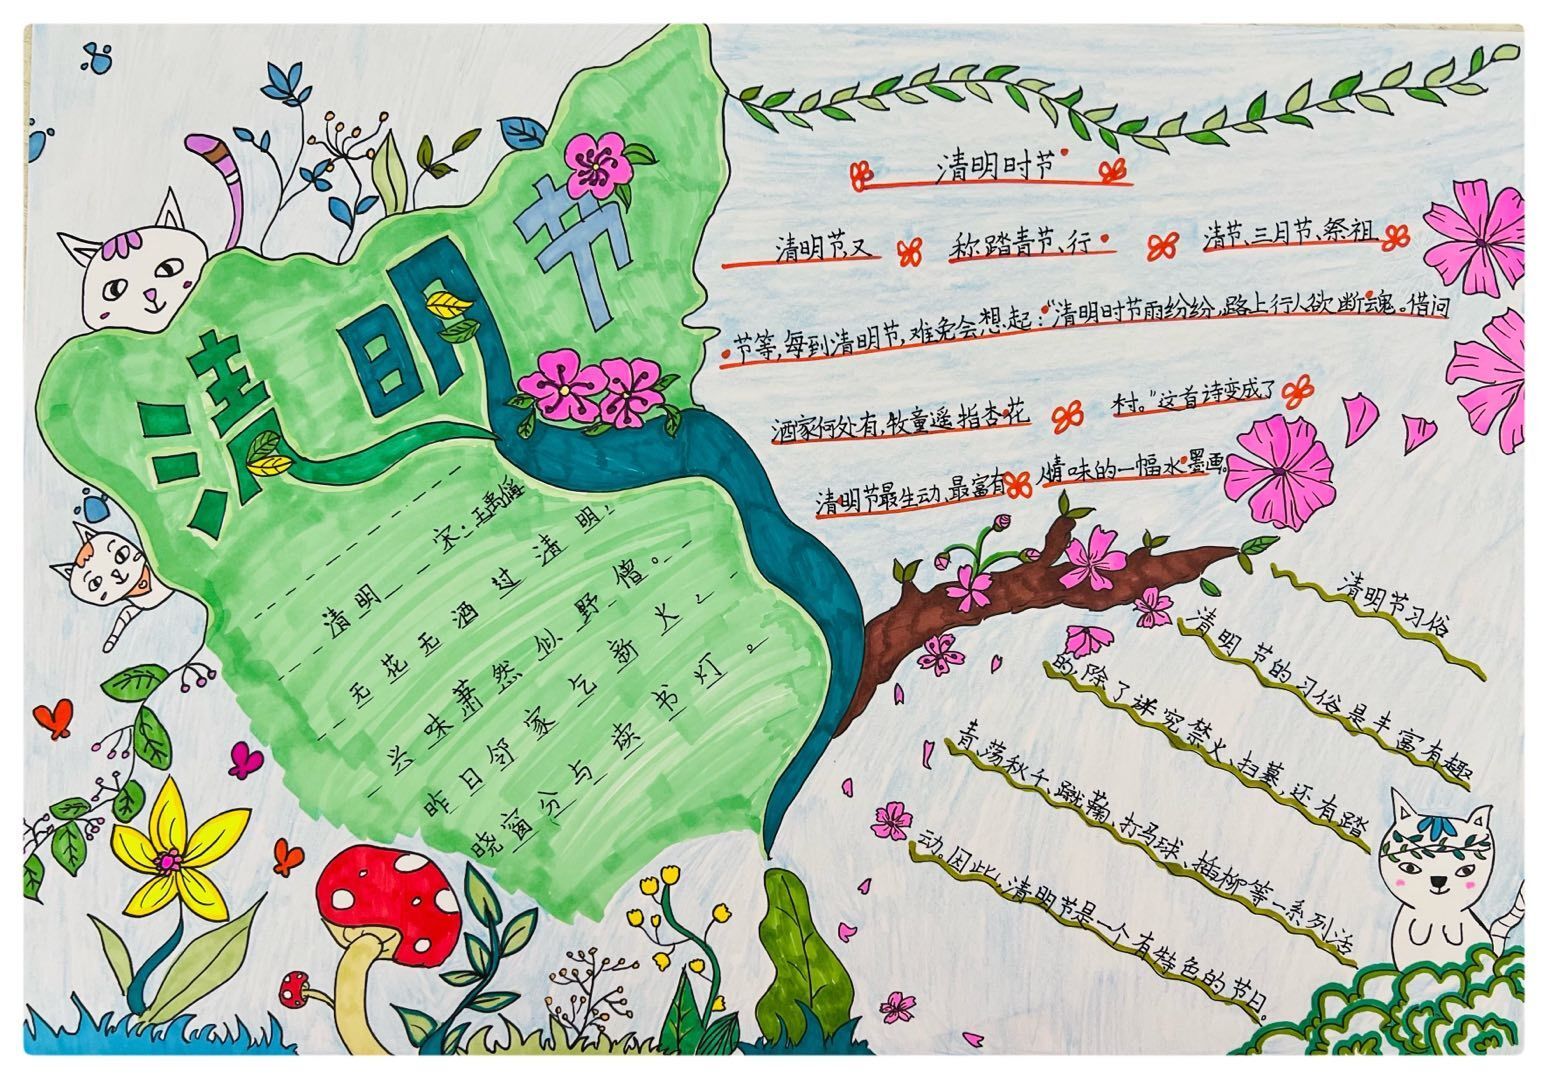 清明节
清明 宋:王禹偁
无花无酒过清明,
兴味萧然似野僧。
昨日邻家乞新火,
晓窗分与读书灯。
清明时节
清明节,又称踏青节、行清节、三月节、祭祖
节等,每到清明节,难免会想起:“清明时节雨纷纷,路上行人欲断魂。借问
酒家何处有,牧童遥指杏花村。”这首诗变成了
清明节最生动、最富有情味的一幅水墨画。
清明节习俗
清明节的习俗是丰富有趣
的,除了讲究禁火、扫墓,还有踏
青、荡秋千、蹴鞠、打马球、插柳等一系列活
动。因此,清明节是一个有特色的节日。